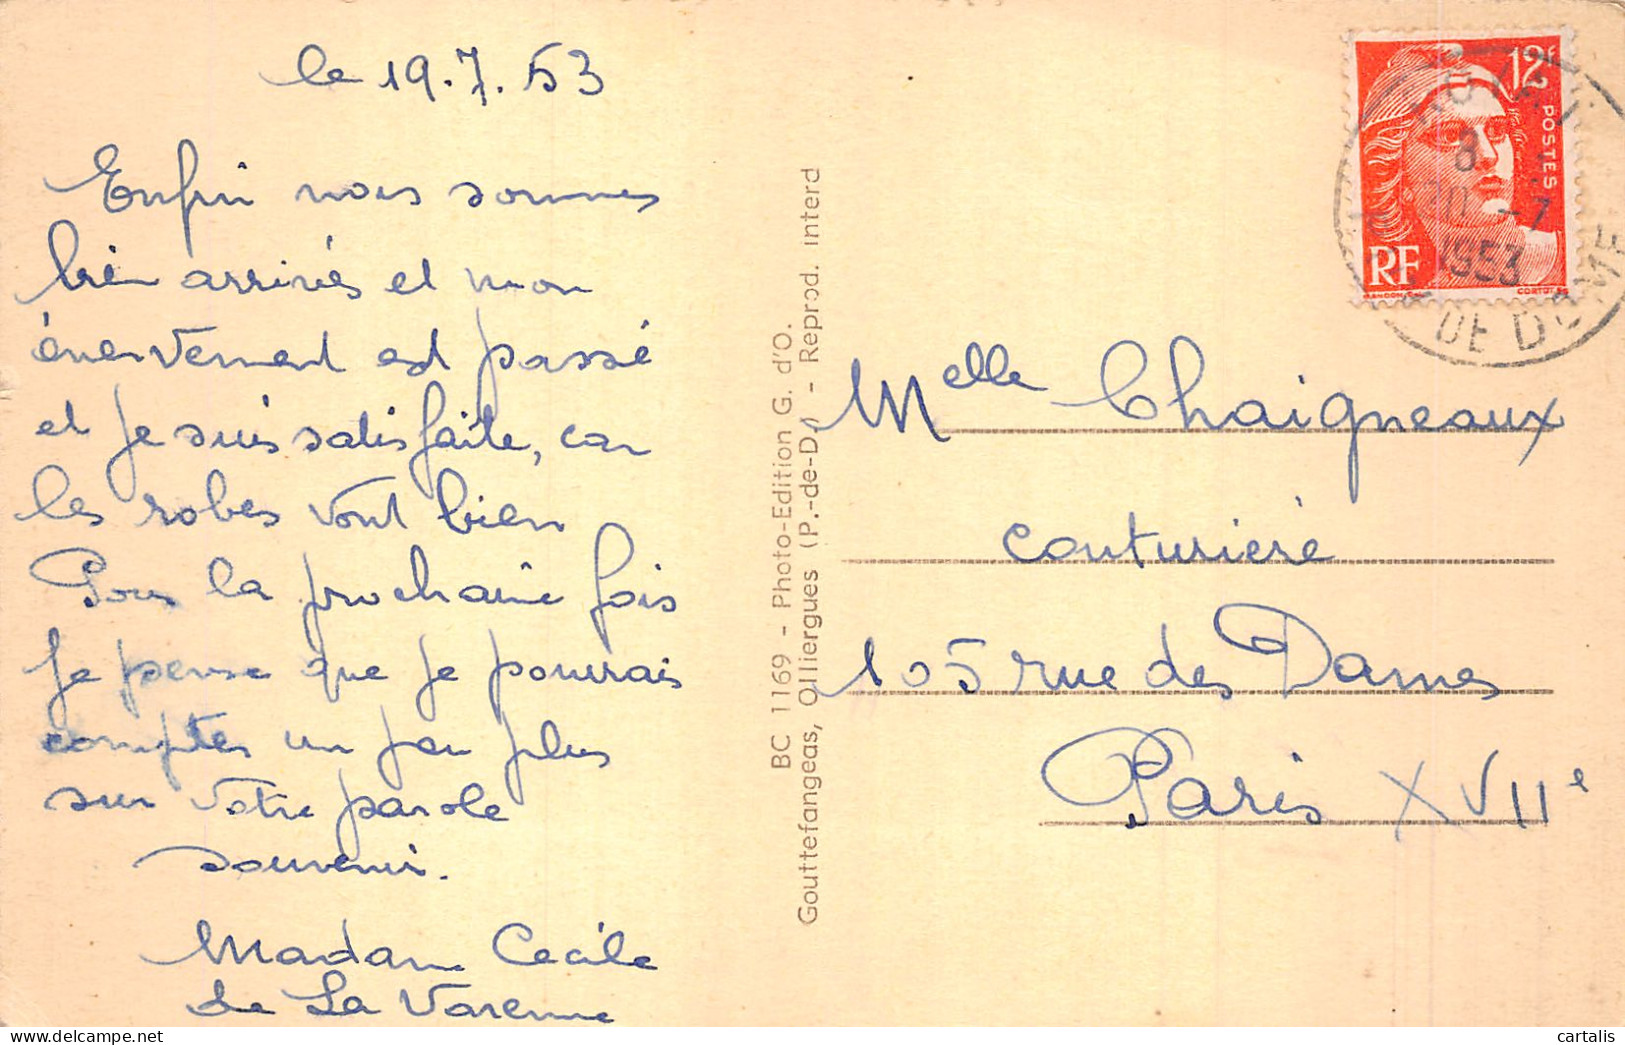 le 19.7.53
Enfin nous sommes
bien arrivés et mon
énervement est passé
et je suis satisfaite, car
les robes vont bien
Pour la prochaine fois
je pense que je pourrais
compter un peu plus
sur votre parole
souvenir.
Madame Cecile
de La Varenne
BC 1169 - Photo-Edition G. d'O.
Gouttefangeas, Olliergues (P.-de-D.) - Reprod. interd
12F
POSTES
RF
CORTOT
8
20 -7
1953
DE DOME
Melle Chaigneaux
couturière
105 rue des Dames
Paris XVIIe
cartalis